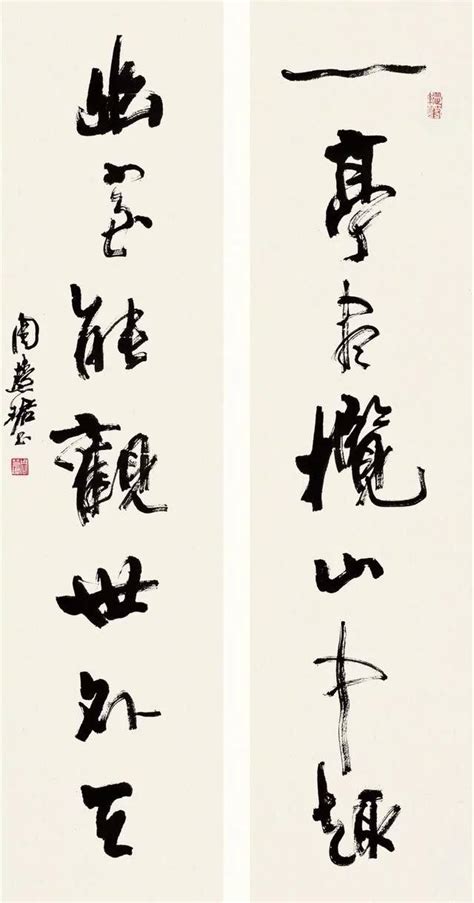 一亭尽攬山中趣
幽室能觀世外天
周慧珺书